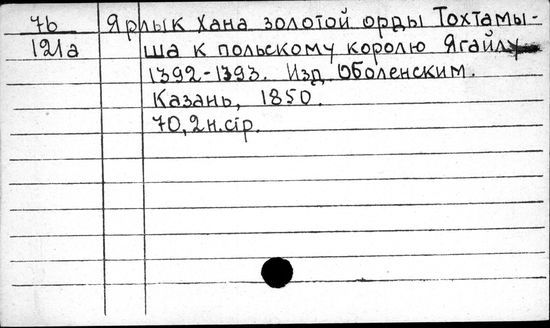 7b Ярлык Хана золотой орды Тохтамы-
121a ша к польскому королю Ягайлу
1392-1393. Изд. Оболенским.
Казань, 1850.
70, 2н.сiр.